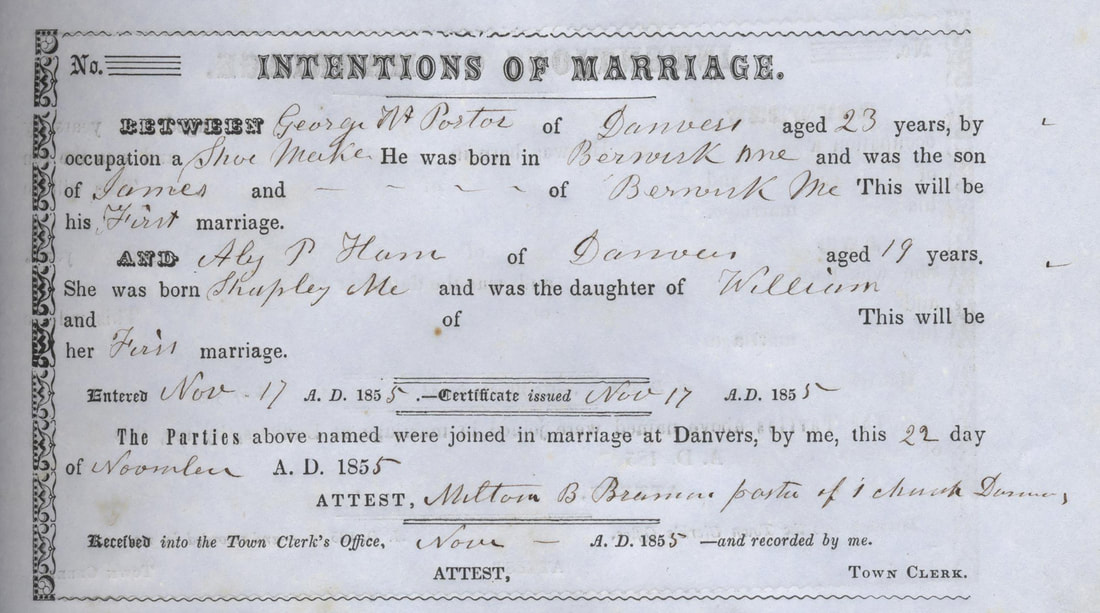 No.
INTENTIONS OF MARRIAGE.
BETWEEN George W Porter of Danvers aged 23 years, by
occupation a Shoe Make He was born in Berwick Me and was the son
of James and - - - - of Berwick Me This will be
his First marriage.
AND P Ham of Danvers aged 19 years.
She was born Shapley Me and was the daughter of William
and of This will be
her First marriage.
Entered Nov 17 A. D. 1855.—Certificate issued Nov 17 A. D. 1855
The Parties above named were joined in marriage at Danvers, by me, this 22 day
of A. D. 1855
ATTEST, Milton B Braman pastor of 1 church Danvers
Received into the Town Clerk's Office, Nov — A. D. 1855 —and recorded by me.
ATTEST, TOWN CLERK.